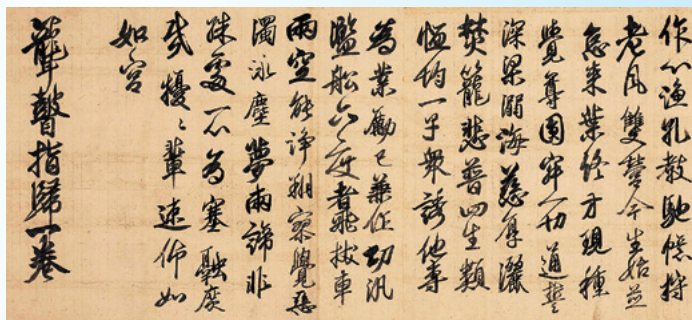 作心漁孔教馳憶狩
老風雙營今生始並
怠來葉終方現種
覺尊圓寂一切通誓
深梁溺海慈厚灑
焚籠悲普四生類
恤均一子衆誘他專
為業勵己兼作功汎
濫船六度者飛拔車
兩空能淨翔寥覺惡
濁泳塵夢兩諦非
殊處一心為塞融庶
幾擾〻輩速仰如
如宮
聾瞽指歸一卷